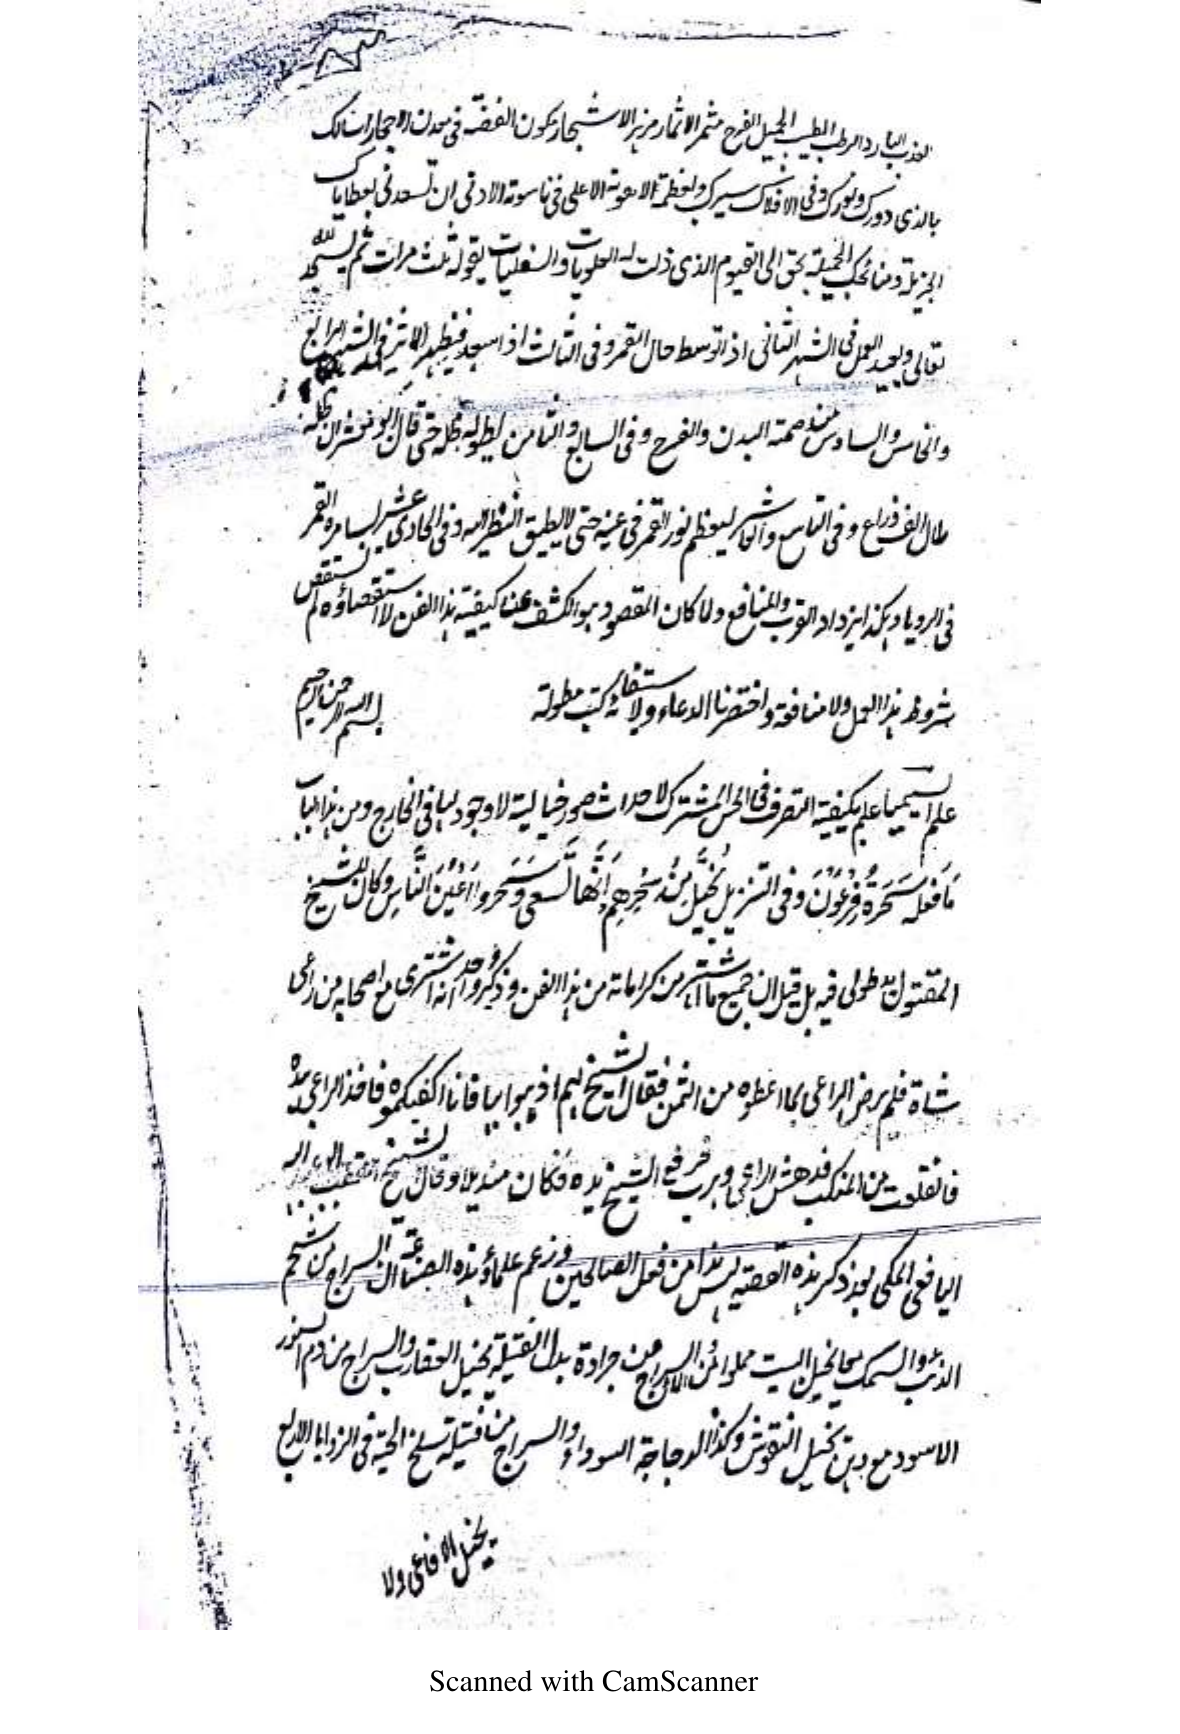 العذب البارد الرطب الطيب الجميل الفرح مثمر الاثمار مزهر الاشجار مكون الفضة فى معدن الاحجار اسالك
بالذى دورك ونورك وفى الافلاك سيرك وبعظمة لاهوته الاعلى فى ناسوته الادنى ان تسعدنى بعطاياك
الجزيلة ومنائحك الجميلة بحق الحى القيوم الذى ذلت له العلويات والسفليات يقوله ثلث مرات ثم يسجد لله
تعالى ويعيد العمل فى الشهر الثانى اذا توسط حال القمر وفى الثالث اذا سجد فيظهر الاثر فى الشهر الرابع
والخامس والسادس صحة البدن والفرح وفى السابع والثامن يطول ظله حتى قال ابو معشر ان ظله
طال الف ذراع وفى التاسع والعاشر يعظم نور القمر فى عينه حتى لا يطيق النظر اليه وفى الحادى عشر يسامره القمر
فى الرويا وهكذا يزداد القرب والمنافع ولما كان المقصود هو الكشف عن كيفية هذا الفن لا استقصاؤه لم نستقص
شروط هذا العمل ولا منافعه واختصرنا الدعاء ولاستيفائه كتب مطولة
بسم الله الرحمن الرحيم
علم السيميا علم بكيفية التصرف فى الحس المشترك لاحداث صور خيالية لا وجود لها فى الخارج ومن هذا الباب
مَا فعله سَحَرَةُ فِرْعَوْنَ وفى التنزيل يُخَيَّلُ مِنْ سِحْرِهِمْ اَنَّهَا تَسْعى وَسَحَروا اَعْيُنَ النَّاسِ وكان للشيخ
المقتول يد طولى فيه بل قيل ان جميع ما اشتهر من كراماته من هذا الفن وذكروا انه اشترى مع اصحابه من راعى
شاة فلم يرض الراعى بما اعطوه من الثمن فقال الشيخ لهم اذهبوا بها فانا اكفيكموه فاخذ الراعى يده
فانقلعت من المنكب فدهش الراعى وهرب فرفع الشيخ يده فكان منديلا وقال الشيخ
اليافعى المكى بعد ذكر هذه القصة ليس هذا من فعل الصالحين وزعم علماؤ هذه الصناعة ان السراج من شحم
الذئب والسمك مما يخيل البيت مملوا من السراج من جرادة بدل الفتيلة يخيل العقارب والسراج من دم السنور
الاسود مع دهن يخيل النقوش وكذا الدجاجة السوداء والسراج من فتيلة سلخ الحية فى الزوايا الاربع
يخيل الافاعى ولا
Scanned with CamScanner